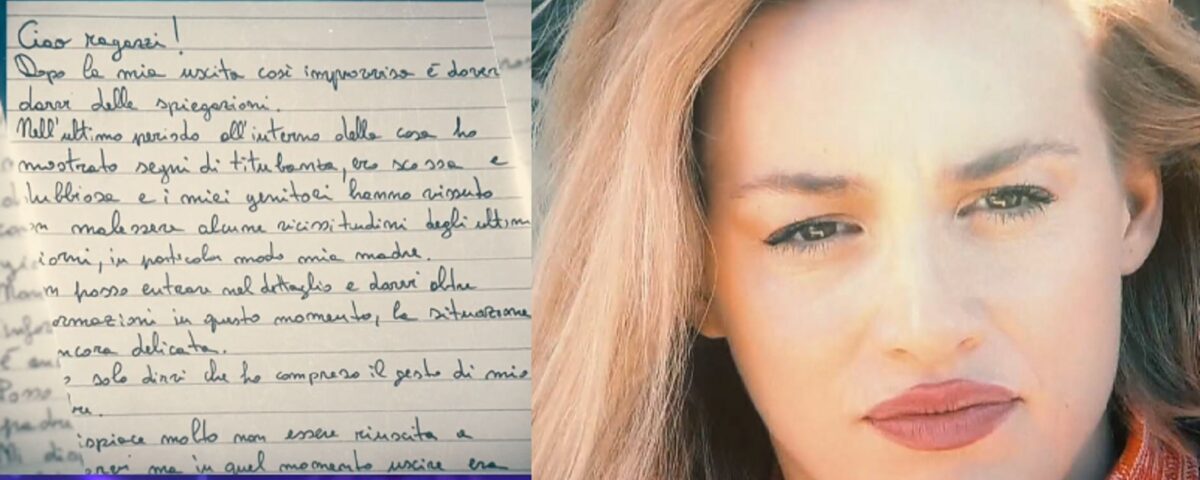 Ciao ragazzi!
Dopo la mia uscita così improvvisa è dover
darvi delle spiegazioni.
Nell'ultimo periodo all'interno della casa ho
mostrato segni di titubanza, ero scossa e
dubbiosa e i miei genitori hanno vissuto
con malessere alcune vicissitudini degli ultimi
giorni, in particolar modo mia madre.
Non posso entrare nel dettaglio e darvi altre
informazioni in questo momento, la situazione
ncora delicata.
solo dirvi che ho compreso il gesto di mio
ispiace molto non essere riuscita a
ma in quel momento uscire era